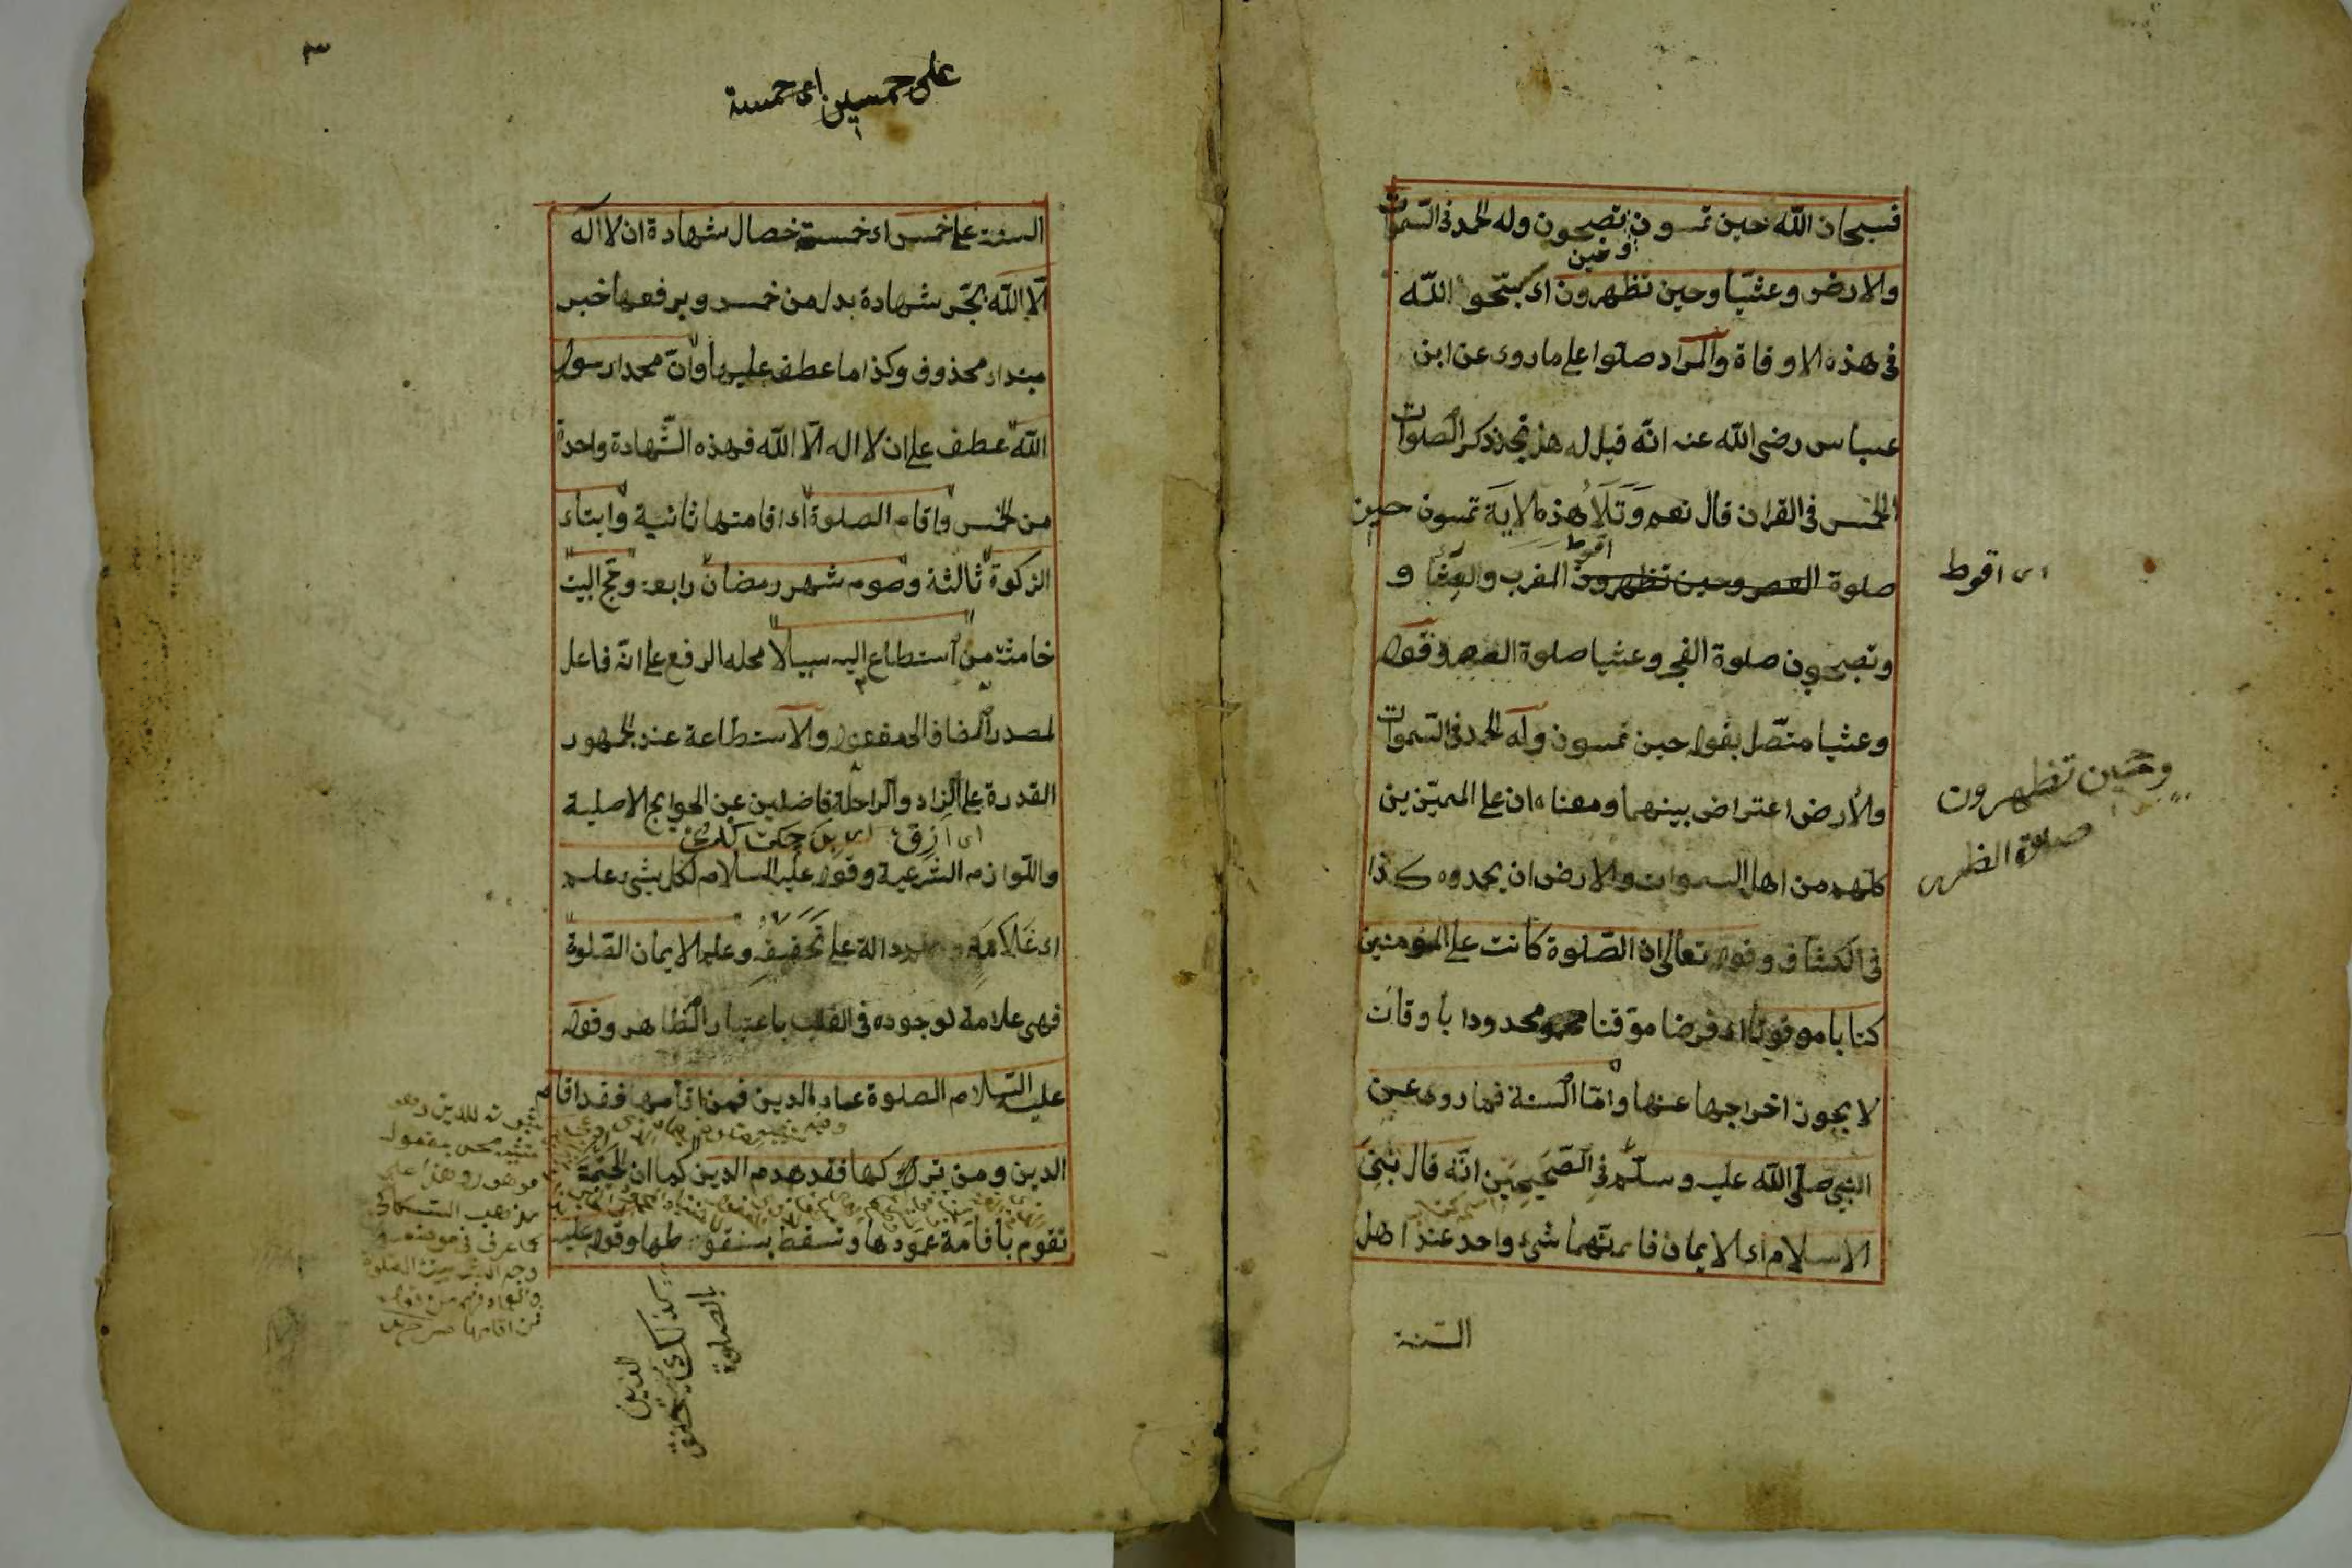 فسبحان الله حين تمسون وحين تصبحون وله الحمد في السموات
والارض وعشيا وحين تظهرون اى سبحوا الله
فى هذه الاوقاة والمراد صلوا على ما روى عن ابن
عباس رضى الله عنه انه قيل له هل تجد ذكر الصلوات
الخمس فى القران قال نعم وتلا هذه الاية تمسون حين
صلوة العصر وحين تظهرون المغرب والعشا و
وتصبحون صلوة الفجر وعشيا صلوة العصر وقوله
وعشيا متصل بقوله حين تمسون وله الحمد فى السموات
والأرض اعتراض بينهما ومعناه ان على المميزين
كلهم من اهل السموات والارض ان يحمدوه كذا
فى الكشاف وقوله تعالى ان الصلوة كانت على المؤمنين
كتابا موقوتا اى فرضا موقتا محدودا بأوقات
لا يجوز اخراجها عنها واما السنة فما روى عن
النبى صلى الله عليه وسلم فى الصحيحين انه قال بنى
الاسلام اى الايمان فانهما شىء واحد عند اهل
السنة
اى اقوط
وحين تظهرون
صلوة الظهر
٣
على خمسين اى خمسة
السنة على خمس اى خمسة خصال شهادة ان لا اله
الا الله بجر شهادة بدل من خمس وبرفعها خبر
مبتداء محذوف وكذا ما عطف عليها وان محمدا رسول
الله عطف على ان لا اله الا الله فهذه الشهادة واحدة
من الخمس واقام الصلوة اى اقامتها ثانية وايتاء
الزكوة ثالثة وصوم شهر رمضان رابعة وحج البيت
خامسة من استطاع اليه سبيلا محله الرفع على انه فاعل
لمصدر المضاف الى مفعوله والاستطاعة عند الجمهور
القدرة على الزاد والراحلة فاضلين عن الحوايج الاصلية
واللوازم الشرعية وقوله عليه السلام لكل شىء علم
اى علامة دالة على تحقيقه وعلم الايمان الصلوة
فهى علامة لوجوده فى القلب باعتبار الظاهر وقوله
عليه السلام الصلوة عماد الدين فمن اقامها فقد اقام
الدين ومن تركها فقد هدم الدين كما ان الخيمة
تقوم باقامة عمودها وتسقط بسقوطها وقوله عليه
كذلك
الدين
بالصلوة